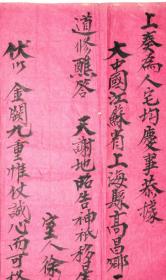 上奏為人宅均慶事恭據
大中國江蘇省上海縣高昌鄉二
道修醮答 天謝地昭告神祇
室人徐
伏以 金闕九重惟仗誠心而可格